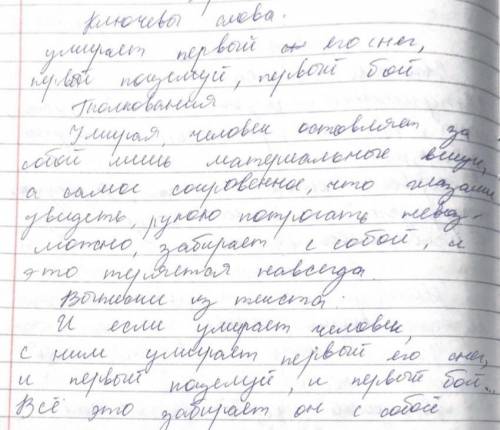 Ключевы слова.
умирает первый его снег,
первый поцелуй, первый бой
Толкования
Умирая, человек оставляет за
собой лишь материальные вещи,
а самое сокровенное, что глазами
увидеть, рукою потрогать невоз-
можно, забирает с собой, и
это теряется навсегда.
из текста:
И если умирает человек,
с ним умирает первый его снег,
и первый поцелуй, и первый бой...
Всё это забирает он с собой